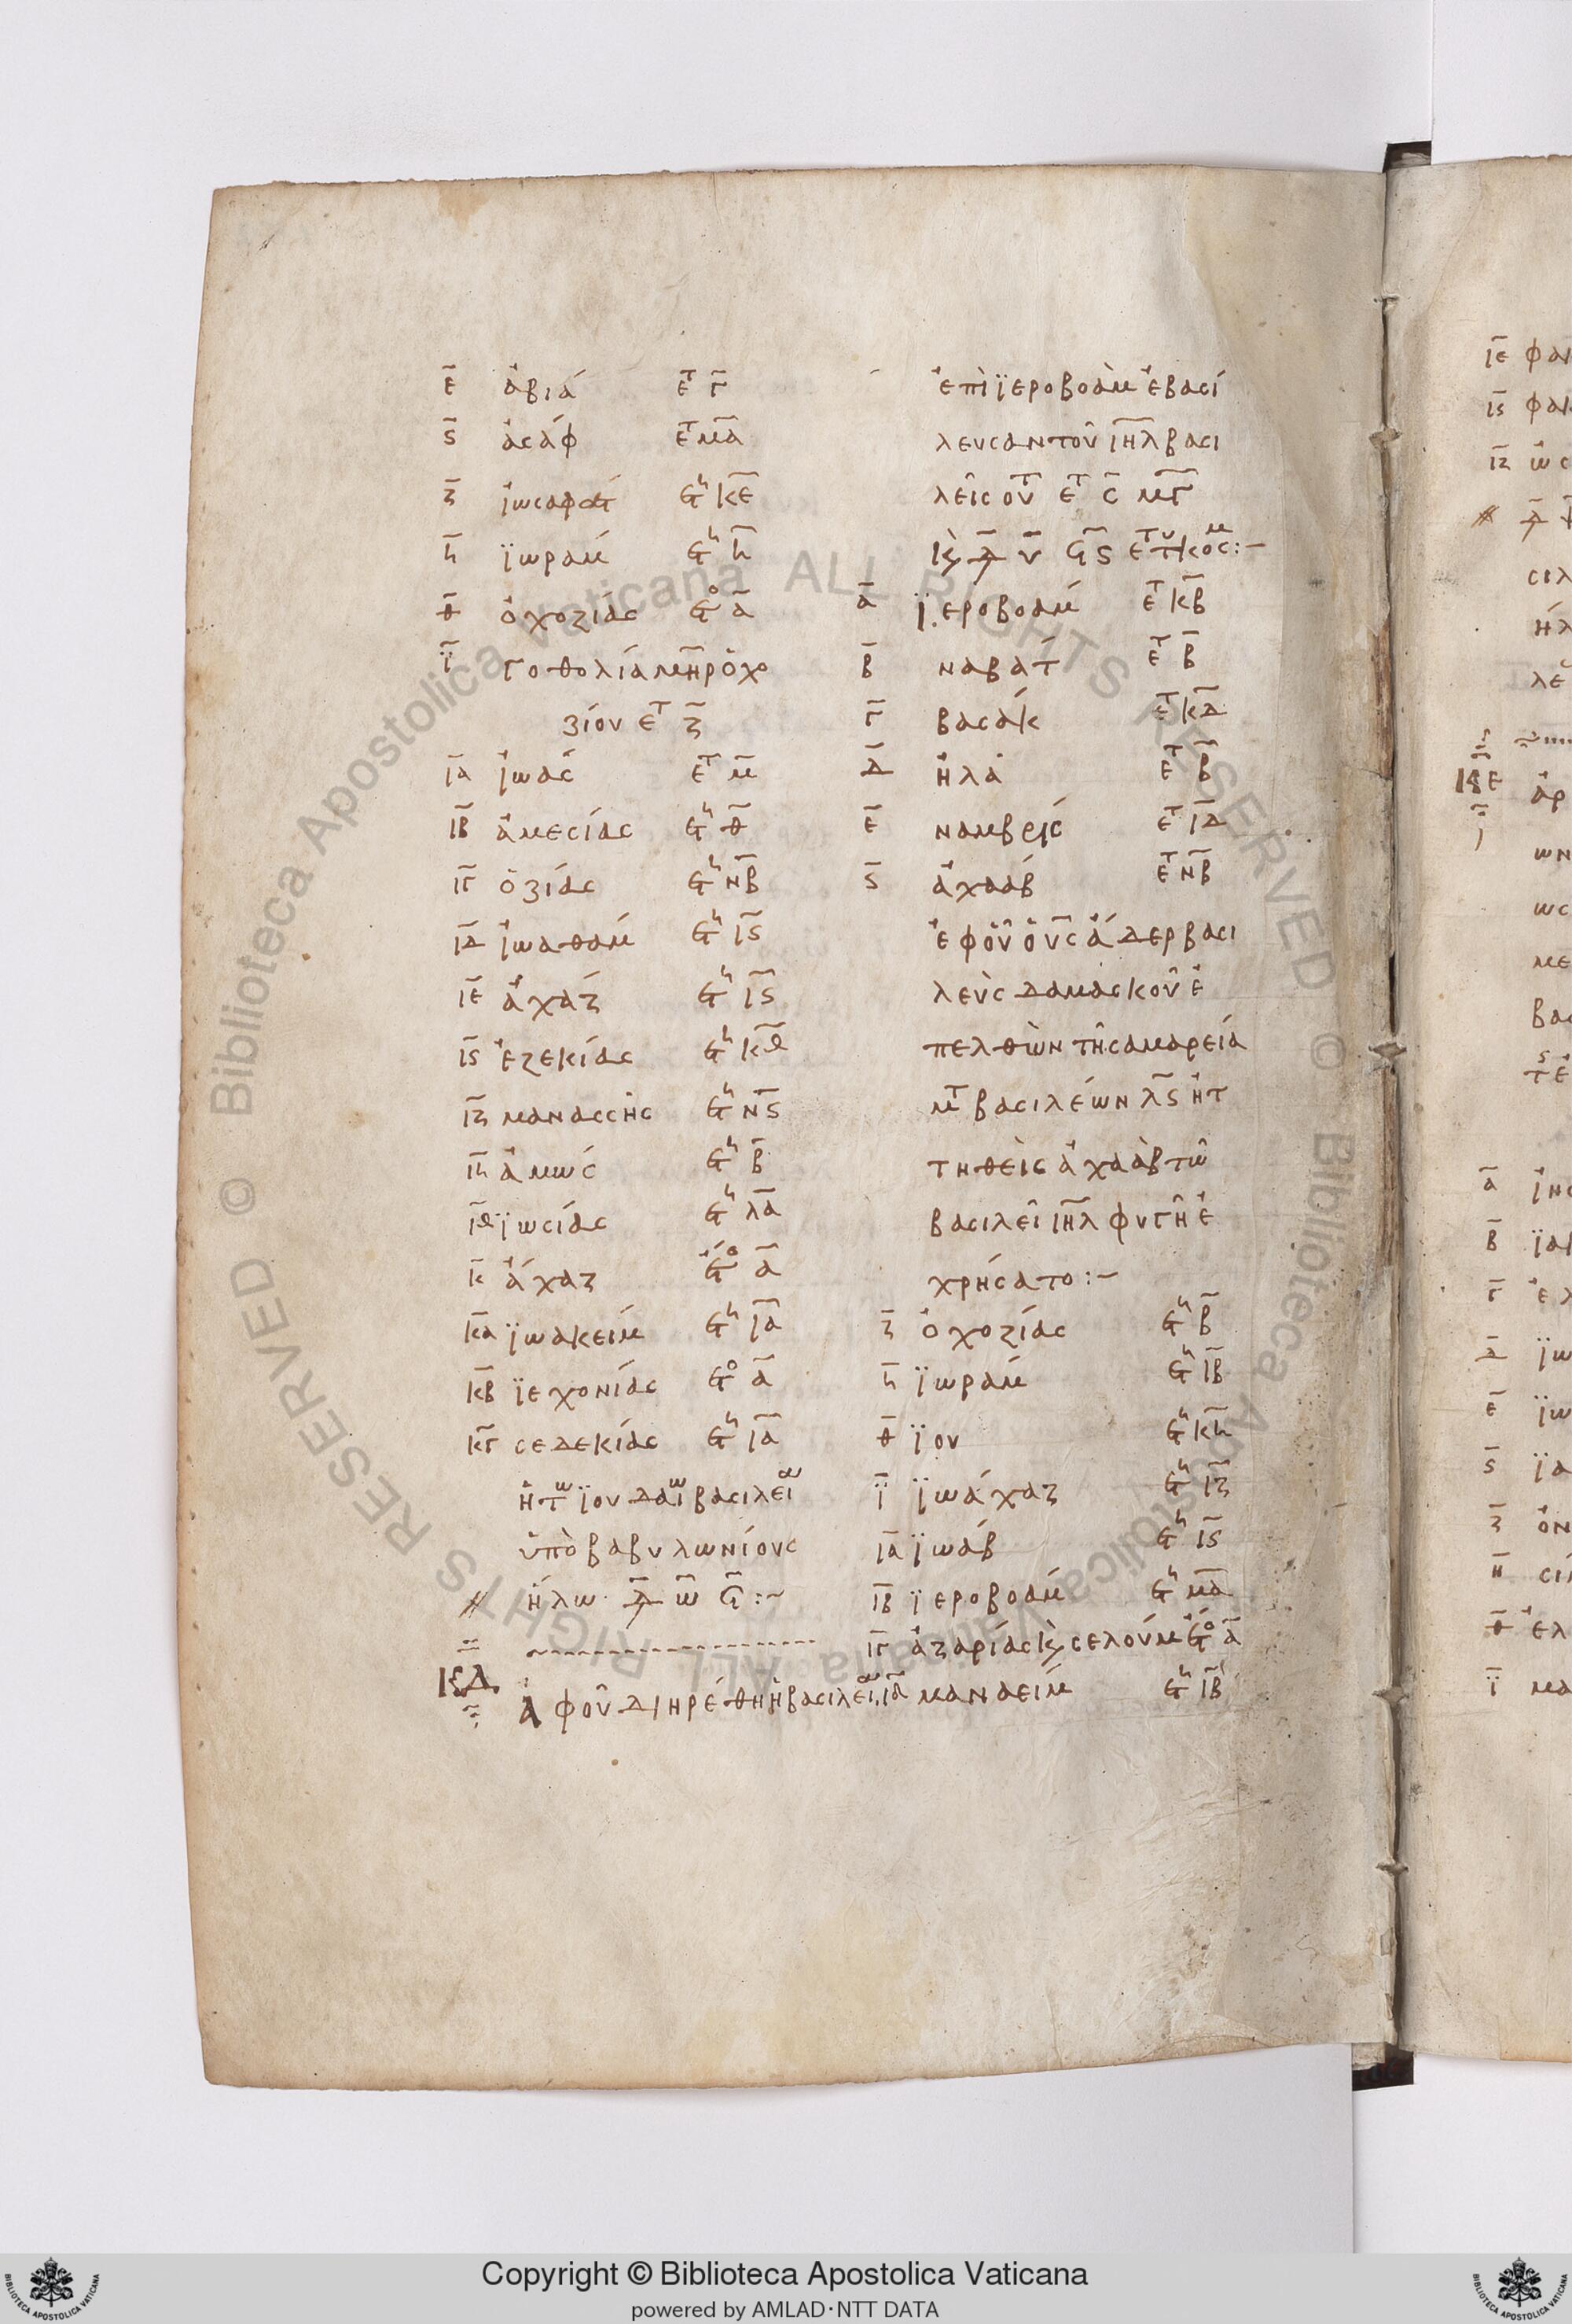 ε̅ ἀβιά ετ γ̅
ϛ̅ ἀσάφ ετ μ̅α̅
ζ̅ ἰωσαφάτ ετη κ̅ε̅
η̅ ϊωράμ ετη η̅
θ̅ ὀχοζίας ετο α̅
ι̅ γοθολία μ̅η̅ρ ὀχο
ζίου ετ ζ̅
ι̅α̅ ἰωάς ετ μ̅
ι̅β̅ ἀμεσίας ετη θ̅
ι̅γ̅ ὀζίας ετη ν̅β̅
ι̅δ̅ ἰωαθάμ ετη ι̅ϛ̅
ι̅ε̅ ἄχαζ ετη ι̅ϛ̅
ι̅ϛ̅ ἐζεκίας ετη κ̅θ̅
ι̅ζ̅ μανασσῆς ετη ν̅ϛ̅
ι̅η̅ ἀμώς ετη β̅
ι̅θ̅ ϊωσίας ετη λ̅α̅
κ̅ ἄχαζ ἔτο α̅
κ̅α̅ ϊωακείμ ετη ι̅α̅
κ̅β̅ ϊεχονίας ετο α̅
κ̅γ̅ σεδεκίας ετη ι̅α̅
ἡ τω ϊουδαϊω βασιλεια
ὑπὸ βαβυλωνίους
ἥλω
ΚΔ ἀφοῦ διηρέθη ἡ βασιλεία
ἐπὶ ϊεροβοὰμ ἐβασί
λευσαν τοῦ ι̅η̅λ̅ βασι
λεῖς ουτ ετ σ̅ μ̅γ̅
α̅ ϊεροβοάμ ετ κ̅β̅
β̅ ναβάτ ετ β̅
γ̅ βασάκ ετ κ̅δ̅
δ̅ ἠλά ετ β̅
ε̅ ναμβρίς ετ ι̅δ̅
ϛ̅ ἀχαάβ ετ ν̅β̅
ἐφοῦ ὁ υ̅ς̅ ἄδερ βασι
λεὺς δαμασκοῦ ἐ
πελθὼν τῆς αμαρεία
μτ βασιλέων λ̅ϛ̅ ἡτ
τηθεὶς ἀχαὰβ τῶ
βασιλεῖ ι̅η̅λ̅ φυγῆ ἐ
χρήσατο :~
ζ̅ ὀχοζίας ετη β̅
η̅ ϊωράμ ετη ι̅β̅
θ̅ ϊου ετη κ̅η̅
ι̅ ϊωάχαζ ετη ι̅ζ̅
ι̅α̅ ϊωάβ ετη ι̅ϛ̅
ι̅β̅ ϊεροβοάμ ετη μ̅α̅
ι̅γ̅ ἀζαρίας κ̀ σελούμ ἔτο α̅
ι̅δ̅ μαναείμ ετη ι̅β̅
Copyright © Biblioteca Apostolica Vaticana
powered by AMLAD·NTT DATA